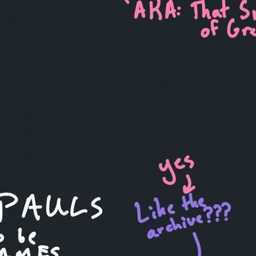 AKA: That
of Gre
yes
Like the
archive???
PAULS
o be
AMES